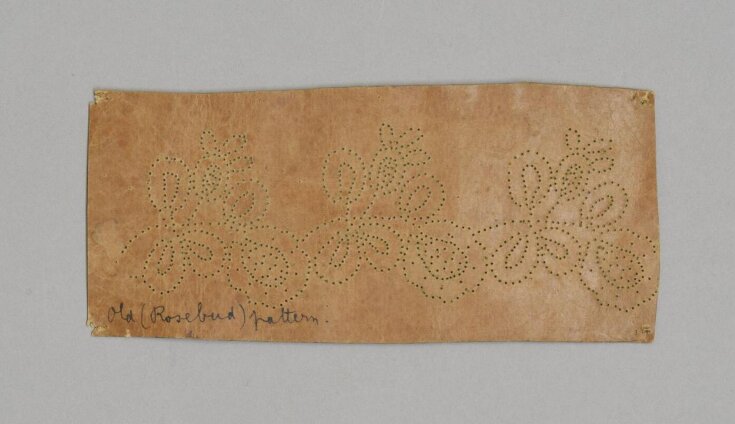 Old (Rosebud) pattern.